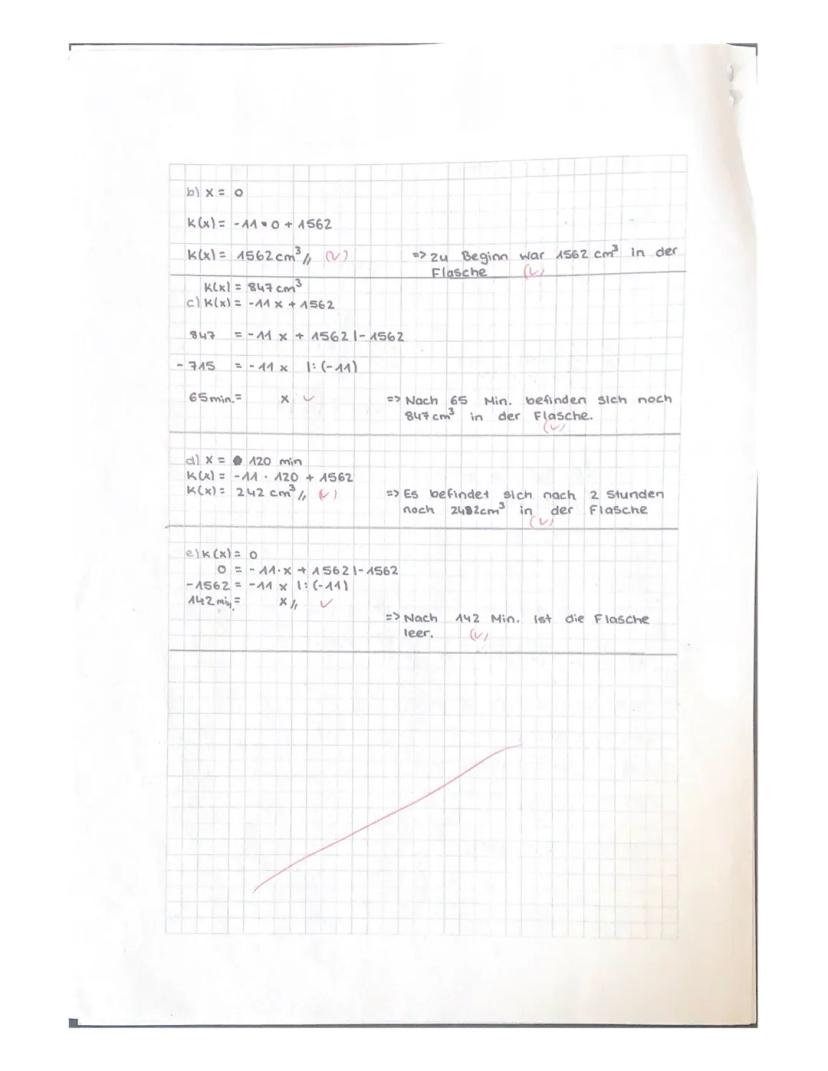 b) x = 0
K(x) = -11 • 0 + 1562
K(x) = 1562 cm³ // (✓) => zu Beginn war 1562 cm³ in der
Flasche (✓)
K(x) = 847 cm³
c) K(x) = -11 x + 1562
847 = -11 x + 1562 | - 1562
- 715 = -11 x | : (-11)
65 min. = x ✓ => Nach 65 Min. befinden sich noch
847 cm³ in der Flasche.
(✓)
d) x = 120 min
K(x) = -11 · 120 + 1562
K(x) = 242 cm³ // (✓) => Es befindet sich nach 2 Stunden
noch cm³ in der Flasche
(✓)
e) K(x) = 0
0 = -11·x + 1562 | - 1562
-1562 = -11 x | : (-11)
142 min. = x // ✓
=> Nach 142 Min. ist die Flasche
leer. (✓)